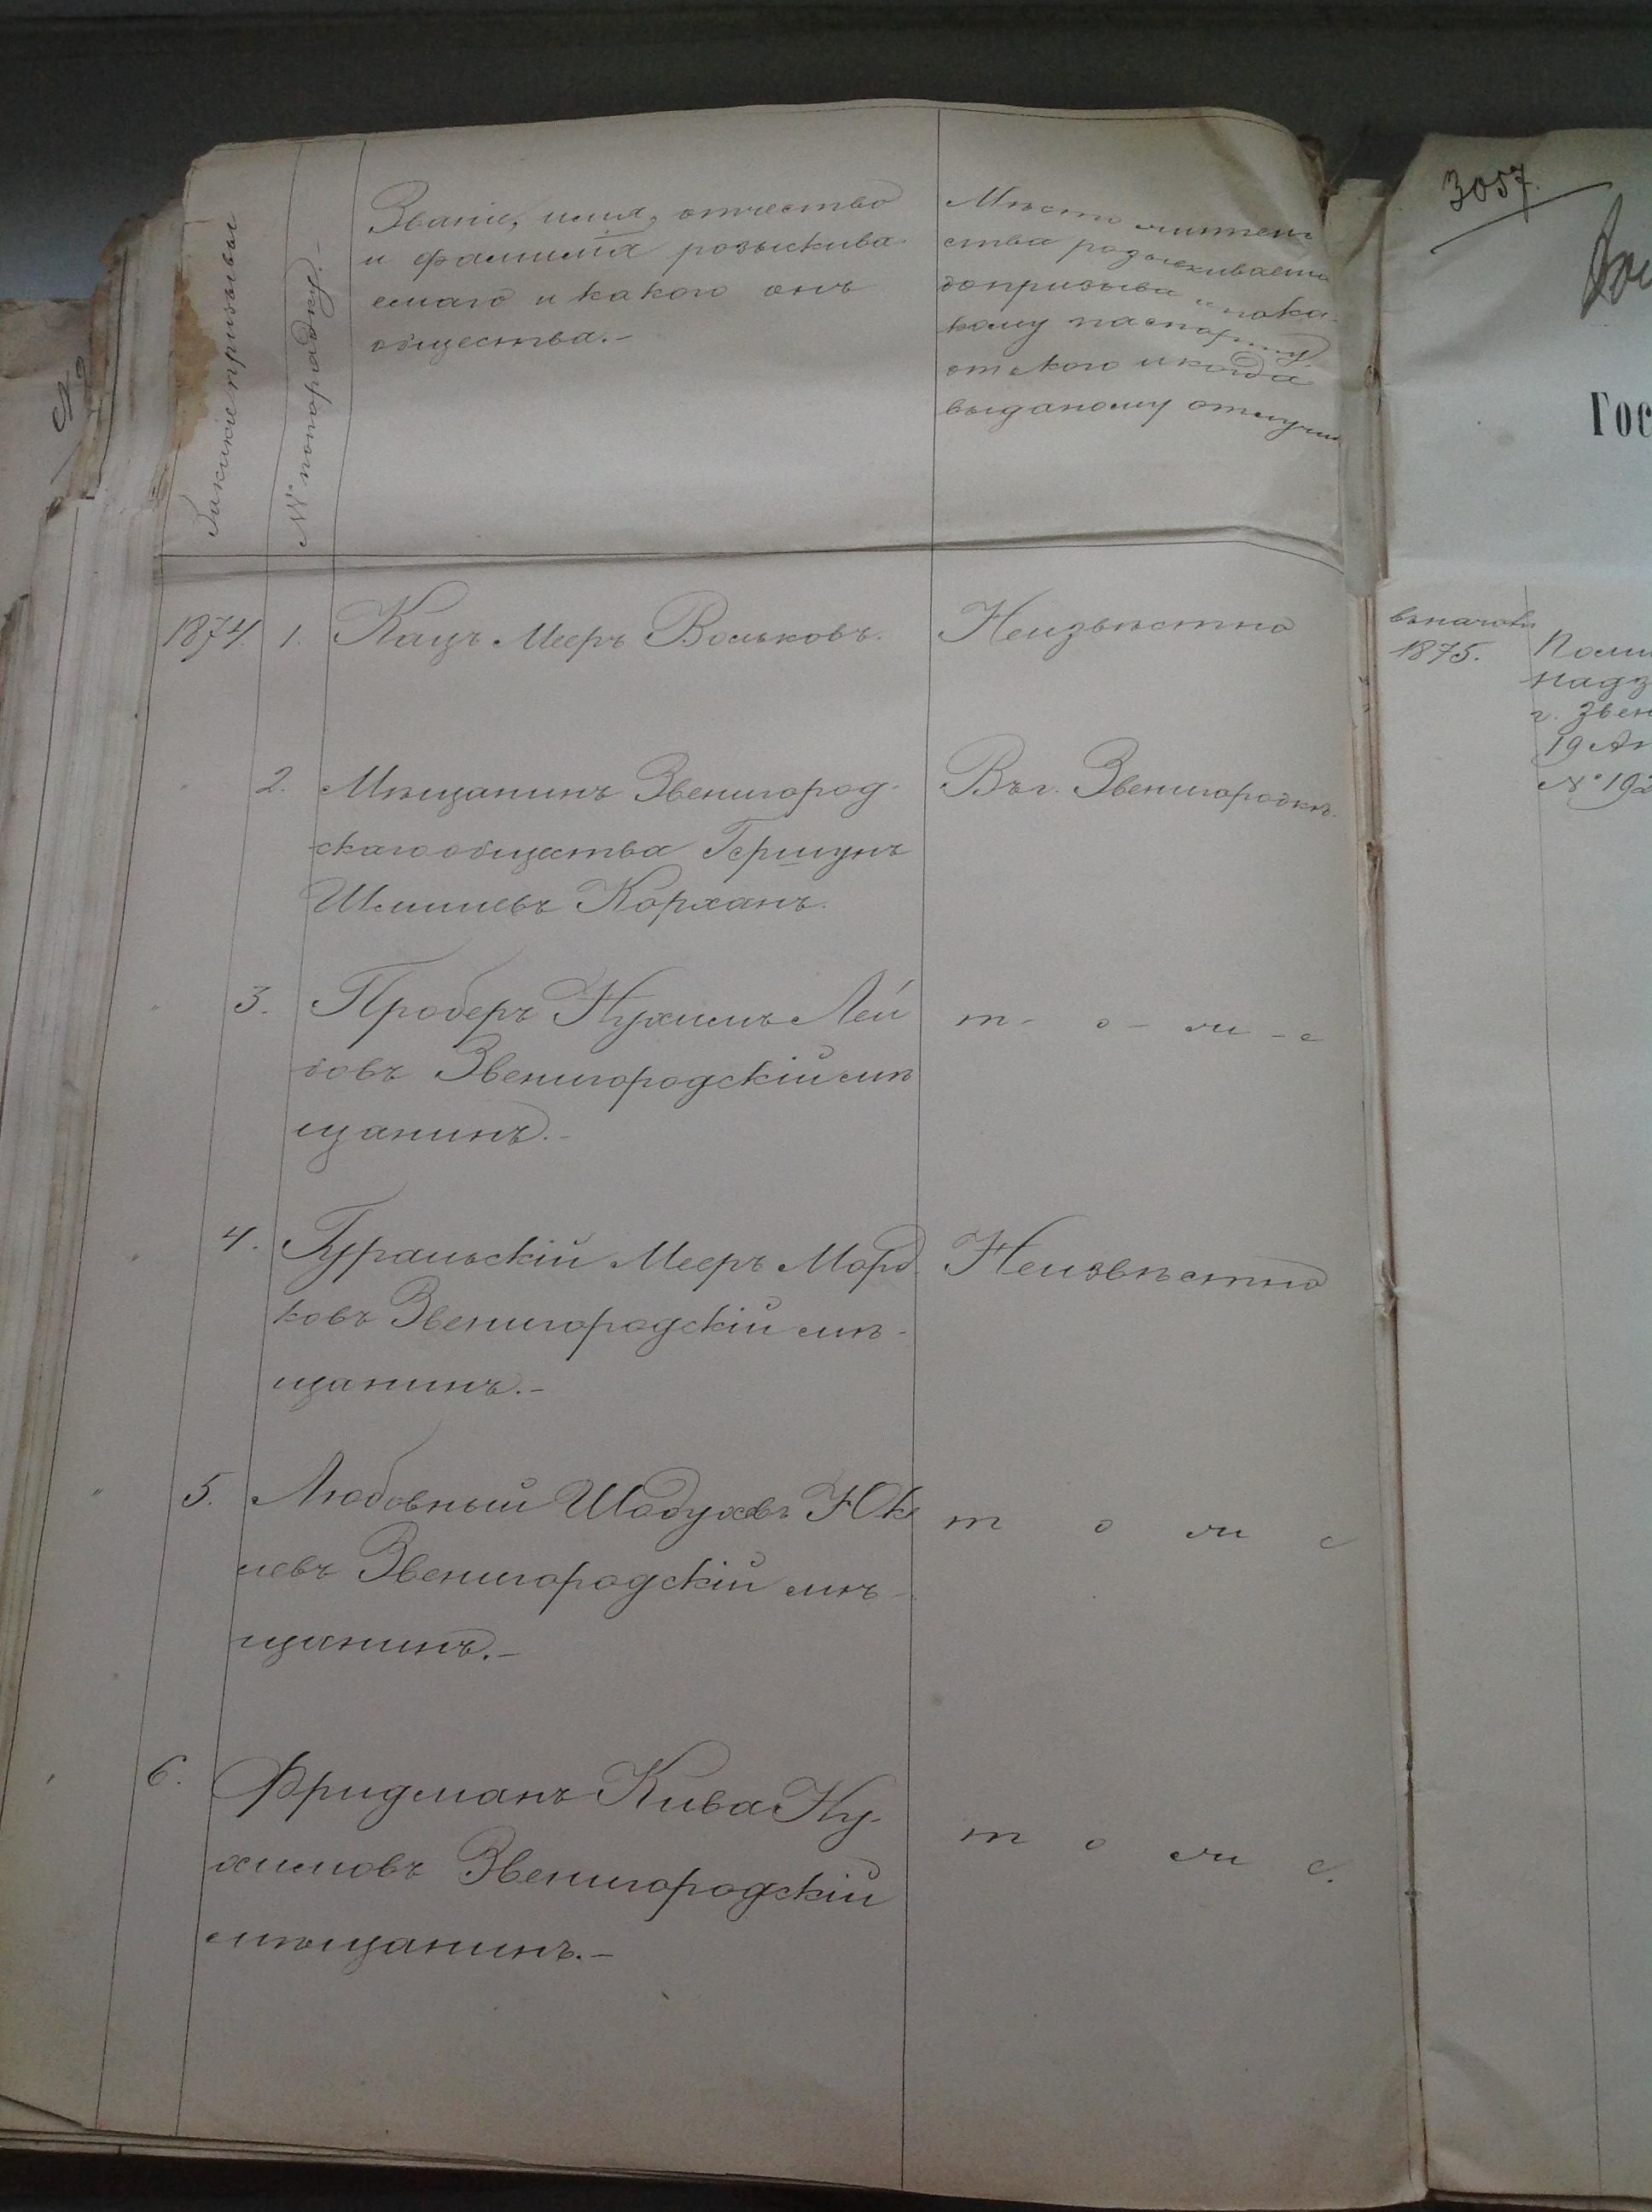 За какіе призывы
№ по порядку.
Званіе, имя, отчество
и фамилія розыскива-
емаго и какого онъ
общества.-
Мѣсто житель
ства розыскиваема
до призыва и по ка-
кому паспорту,
отъ кого и когда
выданому отлучил
1874. 1. Кацъ Мееръ Вольковъ. Неизвѣстно
2. Мѣщанинъ Звенигород- Въ г. Звенигородкѣ.
скаго общества Гершунъ
Шлиигевъ Корханъ.
3. Проберъ Нухимъ Лей т - о - ж - е
бовъ Звенигородскій мѣ
щанинъ.-
4. Гуральскій Мееръ Морд Неизвѣстно
ковъ Звенигородскій мѣ-
щанинъ.-
5. Любовный Юк т о ж е
левъ Звенигородскій мѣ-
щанинъ.-
6. Фридманъ Кива Ну- т о ж е.
химовъ Звенигородскій
мѣщанинъ.-
3057.
Гос
въ началѣ
1875.
Поли
надз
г. Звен
19 Ап
№ 192